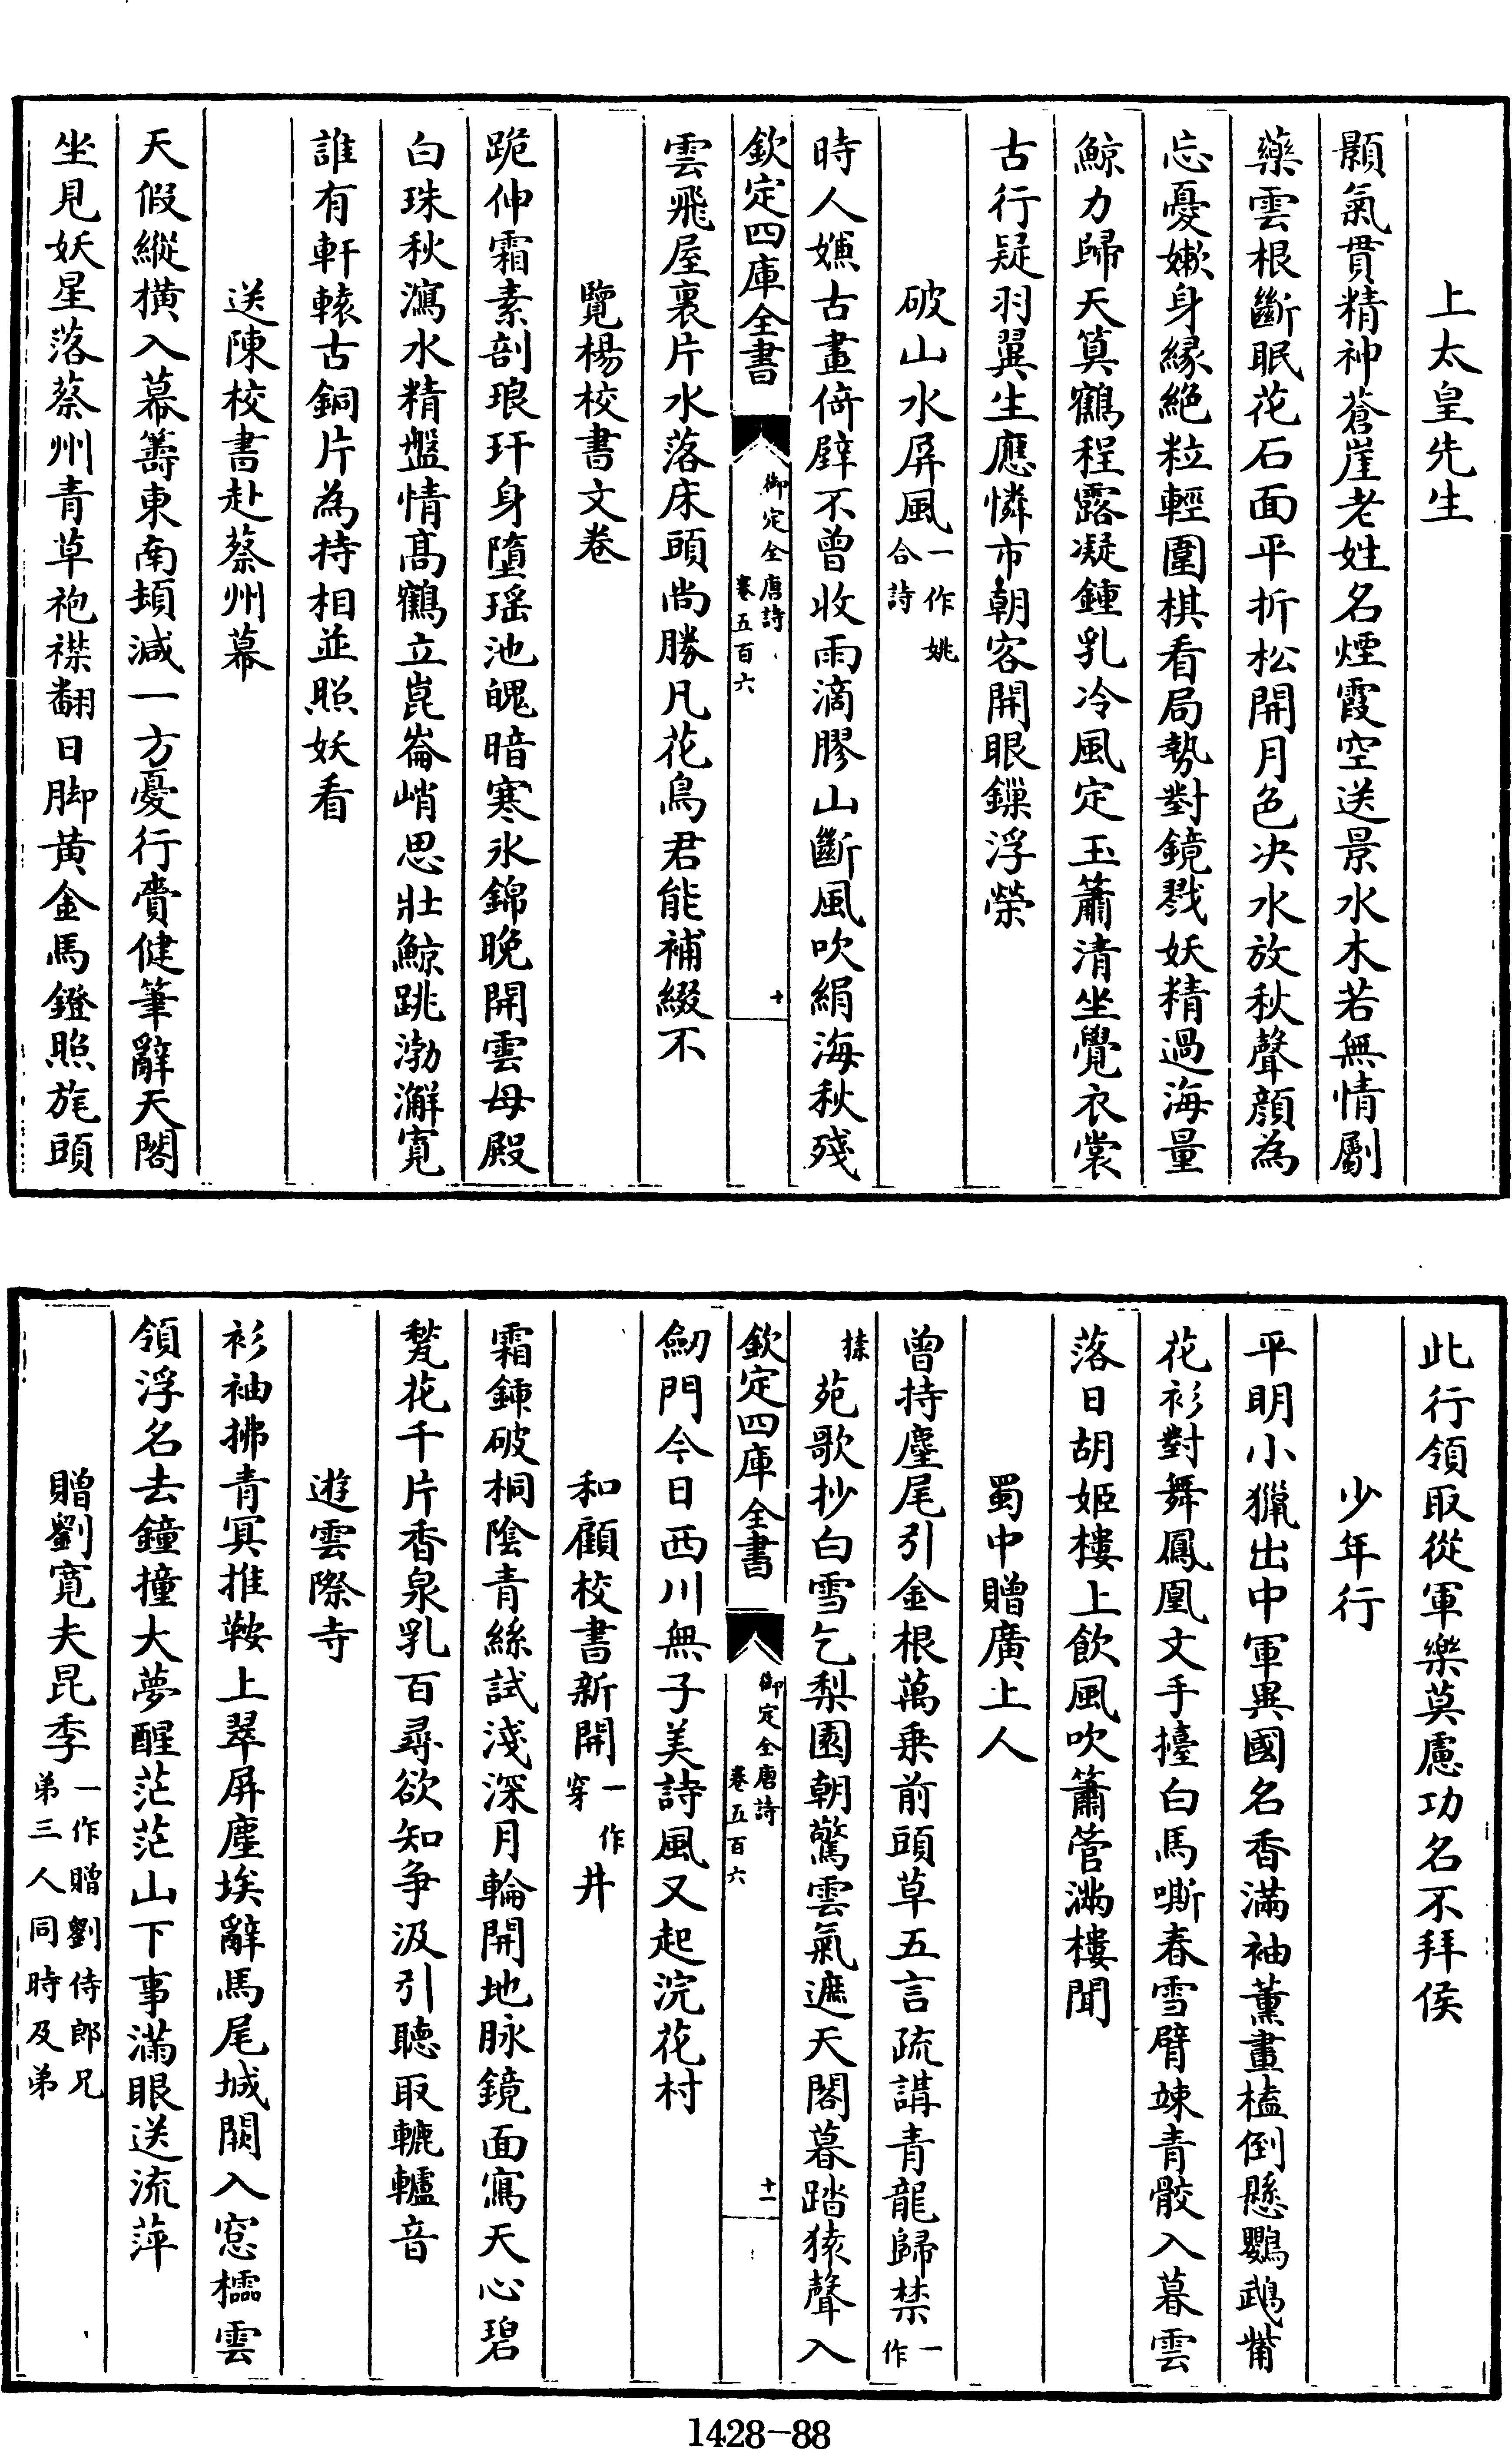 上太皇先生
顥氣貫精神蒼崖老姓名煙霞空送景水木若無情劚
藥雲根斷眠花石面平折松開月色决水放秋聲顔為
忘憂嫰身緣絶粒輕圍棋看局勢對鏡戮妖精過海量
鯨力歸天算鶴程露凝鍾乳冷風定玉簫清坐覺衣裳
古行疑羽翼生應憐市朝客開眼鏁浮榮
破山水屏風一作姚合詩
時人嫌古畫倚壁不曾收雨滴膠山斷風吹絹海秋殘
欽定四庫全書
御定全唐詩卷五百六
十
雲飛屋裏片水落床頭尚勝凡花鳥君能補綴不
覽楊校書文卷
跪伸霜素剖琅玕身墮瑶池魄暗寒氷錦晚開雲母殿
白珠秋瀉水精盤情髙鶴立崑崙峭思壯鯨跳渤澥寛
誰有軒轅古銅片為持相並照妖看
送陳校書赴蔡州幕
天假縱横入幕籌東南頓減一方憂行賫健筆辭天閣
坐見妖星落蔡州青草袍襟翻日脚黄金馬鐙照旄頭
此行領取從軍樂莫慮功名不拜侯
少年行
平明小獵出中軍異國名香滿袖薰畫榼倒懸鸚鵡觜
花衫對舞鳳凰文手擡白馬嘶春雪臂竦青骹入暮雲
落日胡姬樓上飲風吹簫管滿樓聞
蜀中贈廣上人
曾持麈尾引金根萬乗前頭草五言疏講青龍歸禁一作
㨿苑歌抄白雪乞梨園朝驚雲氣遮天閣暮踏猿聲入
欽定四庫全書
御定全唐詩卷五百六
十一
劒門今日西川無子美詩風又起浣花村
和顧校書新開一作穿井
霜鍤破桐陰青絲試淺深月輪開地脉鏡面寫天心碧
甃花千片香泉乳百尋欲知争汲引聽取轆轤音
遊雲際寺
衫袖拂青冥推鞍上翠屏塵埃辭馬尾城闕入窓櫺雲
領浮名去鐘撞大夢醒茫茫山下事滿眼送流萍
贈劉寛夫昆季一作贈劉侍郎兄弟三人同時及第
1428-88